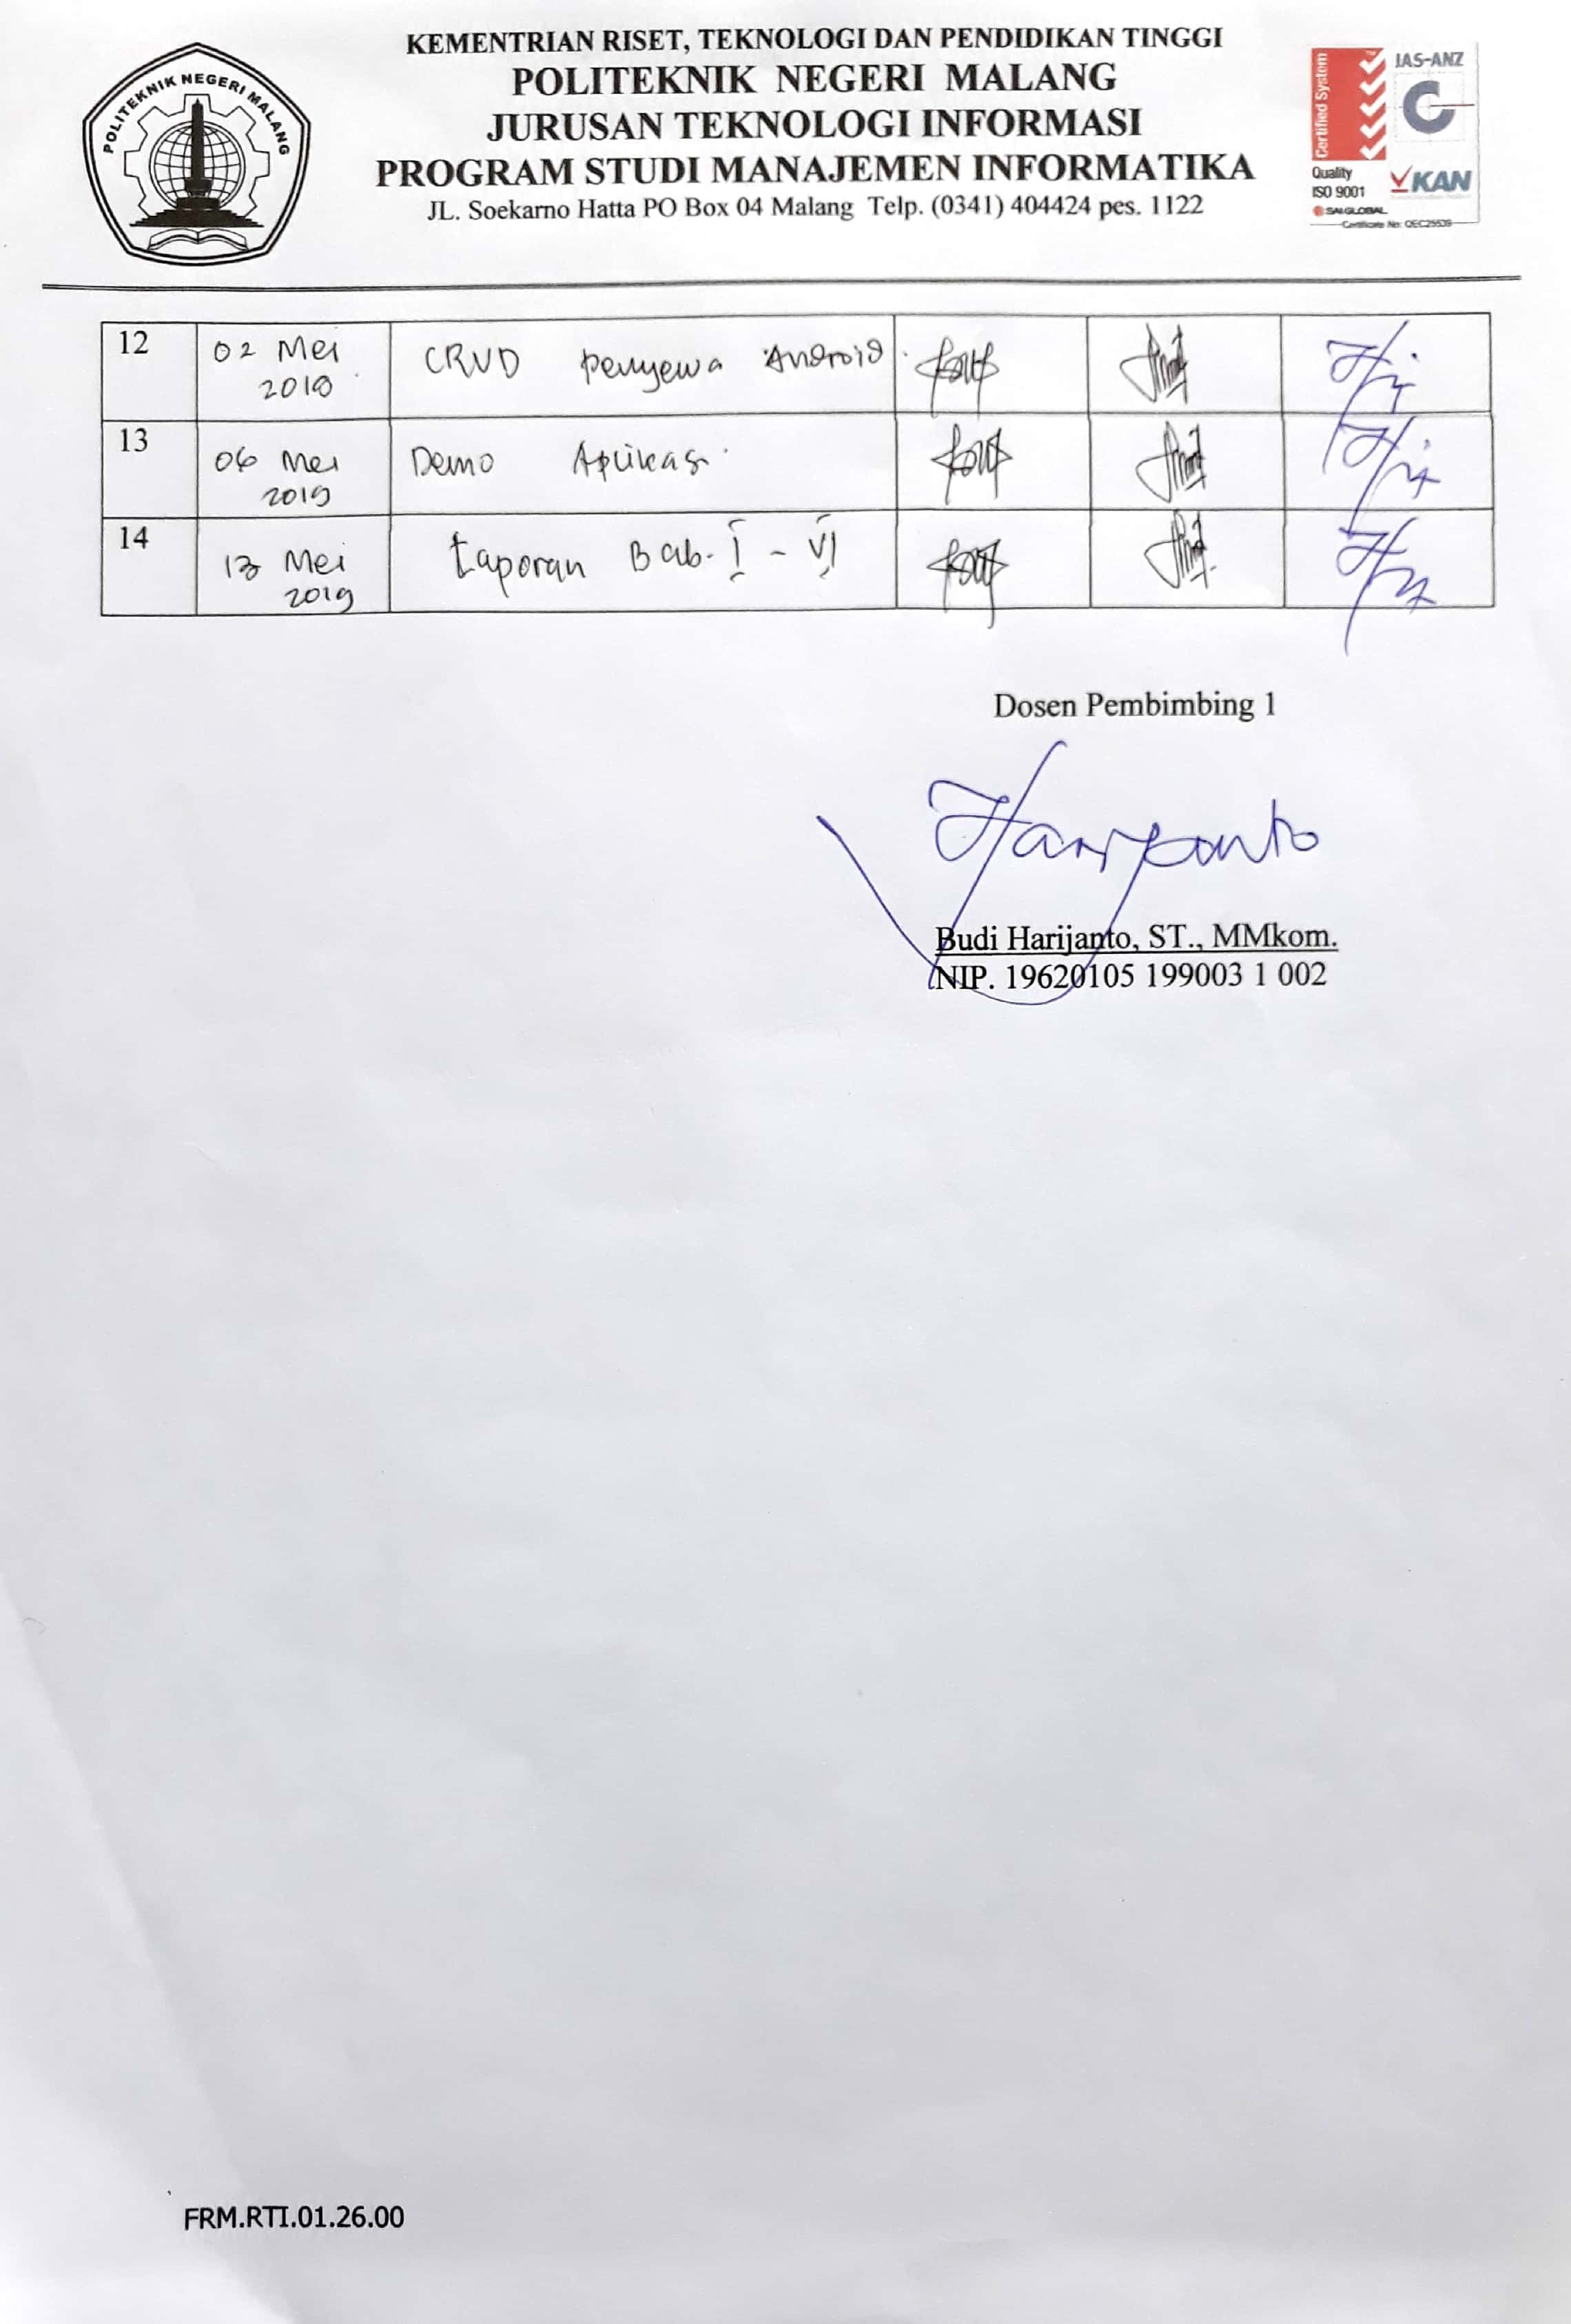 POLITEKNIK NEGERI MALANG
KEMENTRIAN RISET, TEKNOLOGI DAN PENDIDIKAN TINGGI
POLITEKNIK NEGERI MALANG
JURUSAN TEKNOLOGI INFORMASI
PROGRAM STUDI MANAJEMEN INFORMATIKA
JL. Soekarno Hatta PO Box 04 Malang Telp. (0341) 404424 pes. 1122
Certified System
JAS-ANZ
Quality
ISO 9001
KAN
SAI GLOBAL
12
02 Mei
2019
CRUD Penyewa Android
13
06 Mei
2019
Demo Aplikasi
14
13 Mei
2019
Laporan Bab. I - VI
Dosen Pembimbing 1
Harijanto
Budi Harijanto, ST., MMkom.
NIP. 19620105 199003 1 002
FRM.RTI.01.26.00